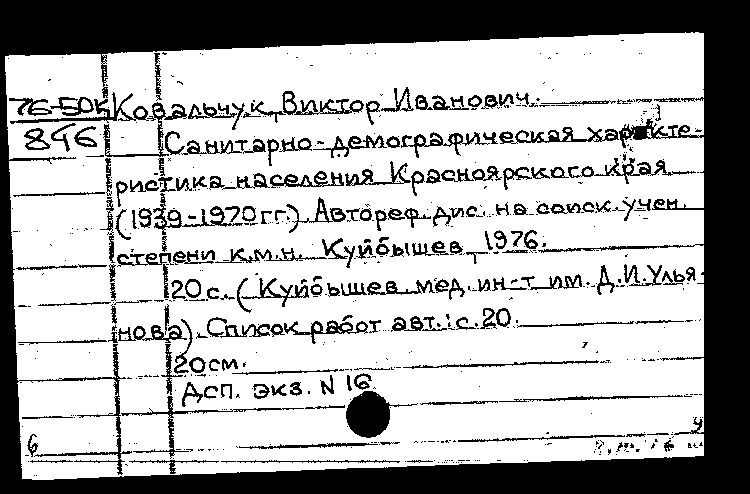 76-50к Ковальчук, Виктор Иванович.
846 Санитарно-демографическая характе-
ристика населения Красноярского края
(1939-1970гг.) Автореф. дис. на соиск. учен.
степени к.м.н. Куйбышев, 1976.
20 с. (Куйбышев. мед. ин-т им. Д.И.Улья-
нова). Список работ авт.: с. 20.
20см.
Дсп. экз. N 16
6